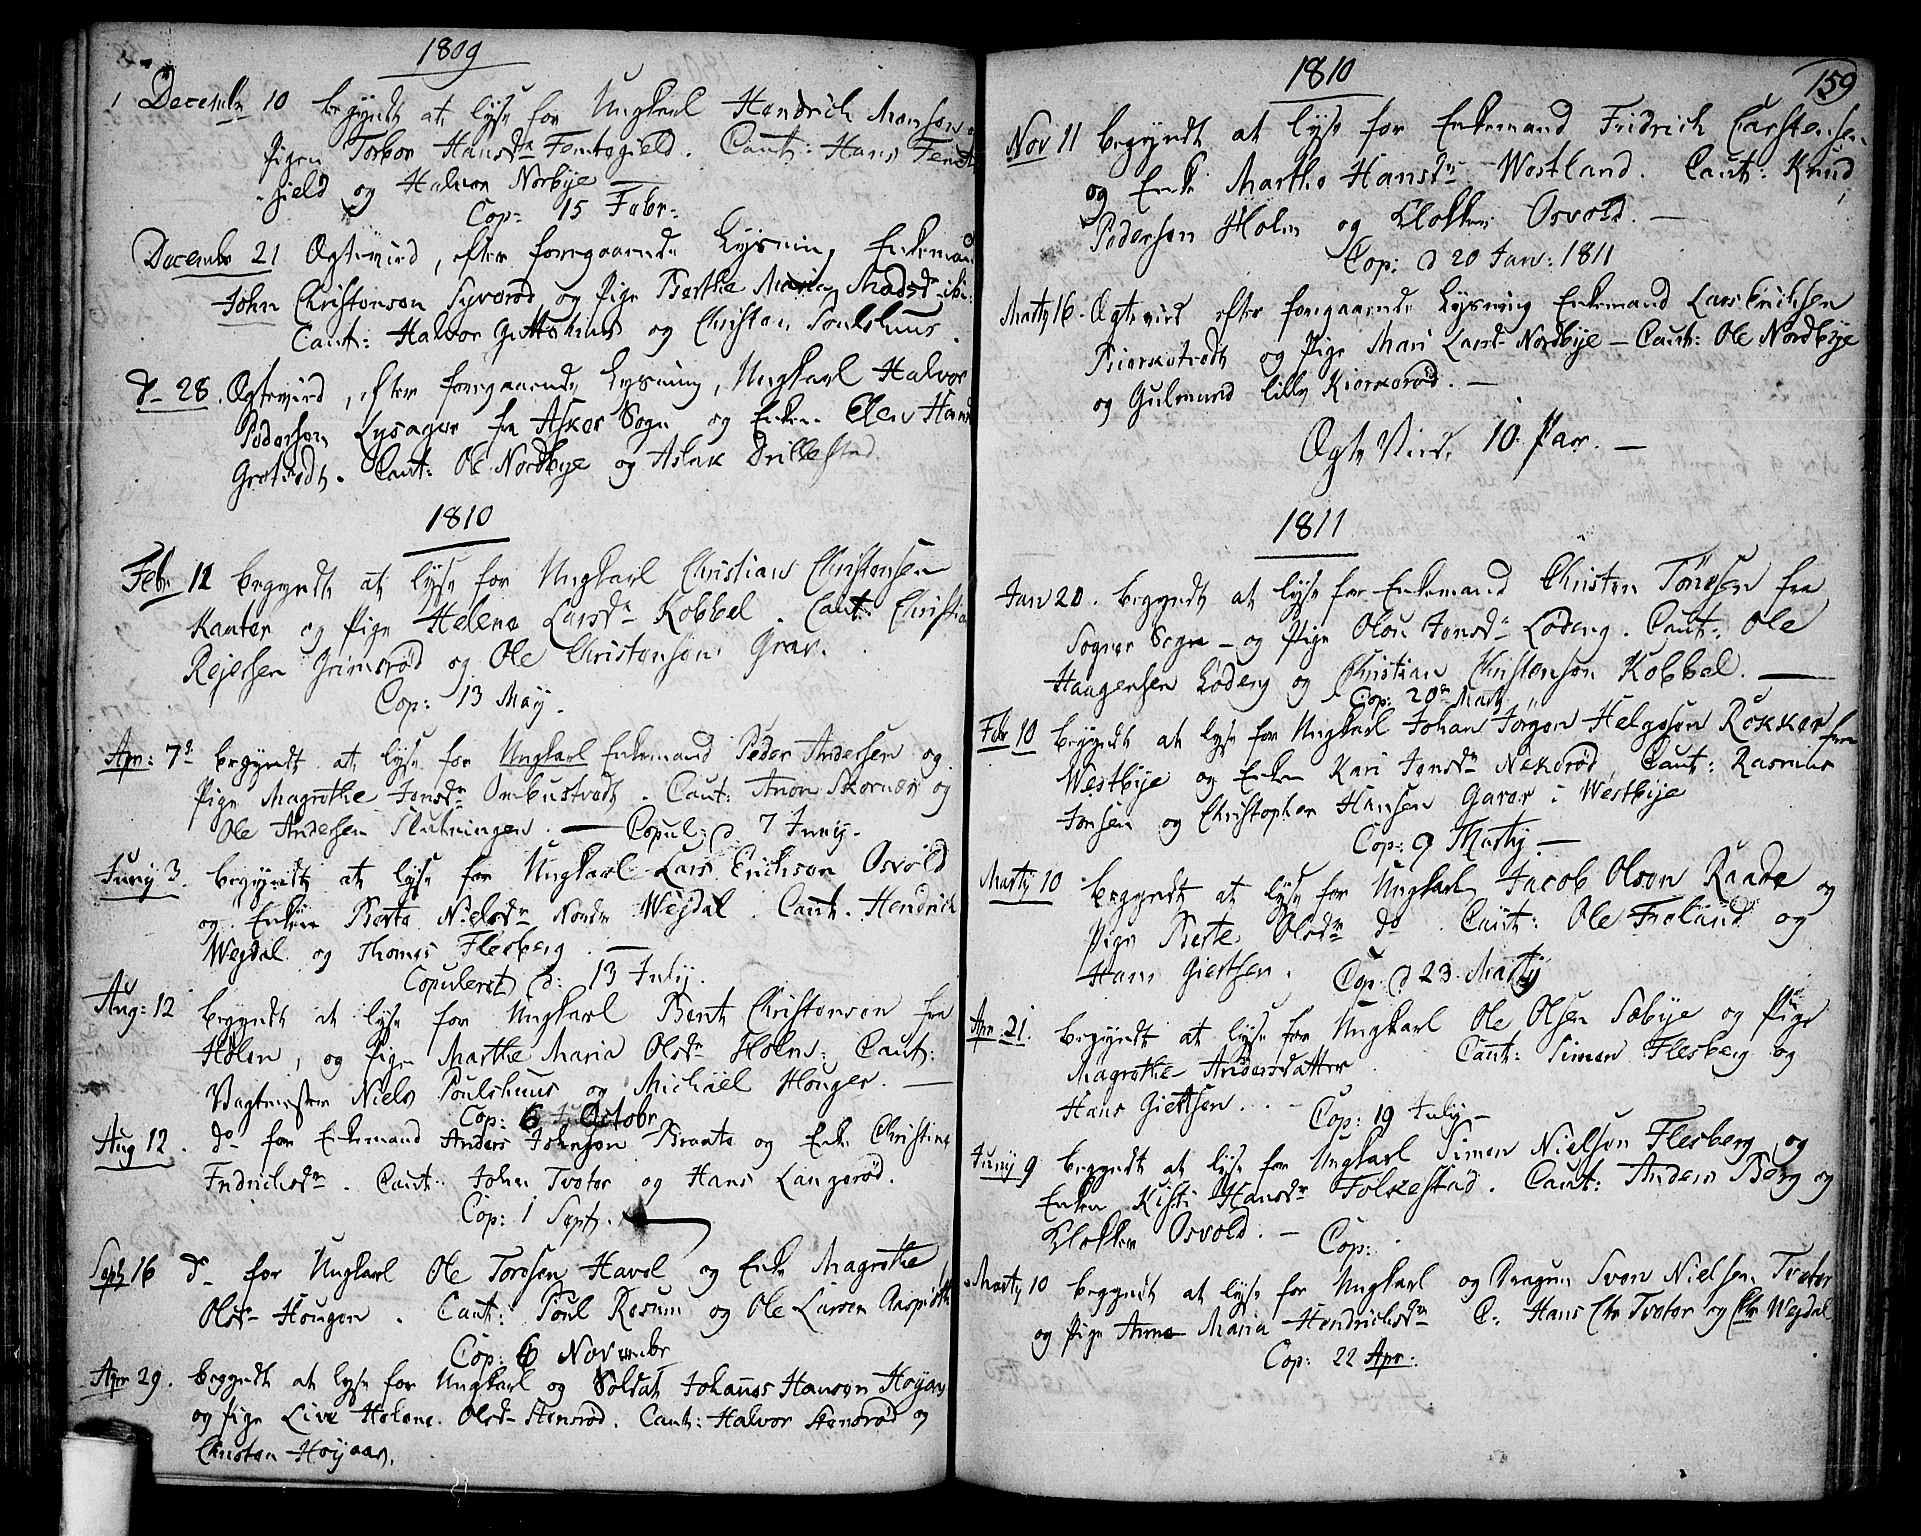 1809
1 December 10 begyndt at lyse for Ungkarl Hendrich Monson
Pigen Torbor Hansdr Femtegield. Caut: Hans Femte
gield og Halvor Norbye —
Cop: 15 Febr:
December 21 Ægteviet, efter foregaaende Lysning, Enkemand
John Christenson Syverød og Pige Berthe Maria Madsdr
Caut: Halvor Guttohuus og Christen Poulshuus.
d– 28. Ægteviet, efter foregaaende Lysning, Ungkarl Halvor
Pederson Lysager fra Asker Sogn og Enken Elen Hans
Grotvedt. Caut: Ole Nordbye og Aslak Drillestad.
1810
Febr 12 begyndt at lyse for Ungkarl Christian Christensen
Kanter og Pige Helene Larsdr Kobbel. Caut: Christian
Rejersen Grimsrød og Ole Christenson Grav.
Cop: 13 May.
Apr: 7de begyndt at lyse for Ungkarl Enkemand Peder Andersen og
Pige Magrethe Jensdr Ombustvedt. Caut: Anon Skornes og
Ole Andersen Slutningen. — Copul: d 7 Juny.
Juny 3. begyndt at lyse for Ungkarl Lars Erichson Osvold
og Enken Berte Nielsdr Nordre Wejdal. Caut. Hendrich
Wejdal og Thomes Flesberg. —
Copuleret d: 13 July.
Aug: 12 begyndt at lyse for Ungkarl Bent Christenson fra
Holen, og Pige Marthe Maria Olsdr Holm: Caut:
Vagtmester Niels Poulshuus og Michael Houger. —
Cop: 6 Octobr
Aug 12. do for Enkemand Anders Johnson Braate og Enke Christine
Fridrichsdr. Caut: John Tveter og Hans Langerød.
Cop: 1 Septr.
Septr 16 do for Ungkarl Ole Toresen Havel og Enke Magrethe
Olsdr Hougen. Caut: Poul Rosum og Ole Larsen
Cop: 6 Novembr
Apr 29. begyndt at lyse for Ungkarl og Soldat Johanes Hanson Hoyaas
og Pige Live Helene Olsdr Stensrød. Caut: Halvor Stensrød og
Christen Hoyaas.
159
1810
Nov 11 begyndt at lyse for Enkemand Fridrich Carstensen
og Enke Marthe Hansdr Westland. Caut: Knud
Pederson Holm og Klokker Osvold. —
Cop: d 20 Jan: 1811
Marty 16. Ægteviet efter foregaaende Lysning Enkemand Lars Erichsen
Biorkotvedt og Pige Mari Larsdr Nordbye — Caut: Ole Nordbye
og Gulmund lille Kiorkerød. —
Ægte Viet 10 Par. —
1811
Jan 20. begyndt at lyse for Enkemand Christen Tønesen fra
Sogner Sogn — og Pige Olou Jonsdr Lødeng. Caut: Ole
Haagensen Lødeng og Christian Christenson Kobbel. —
Cop: 20de Marty
Febr 10 begyndt at lyse for Ungkarl Johan Jørgen Helgeson Røkker fra
Westbye og Enken Kari Jensdr Nekerød. Caut: Rasmus
Jonsen og Christopher Hansen Garer i Westbye
Cop: 9 Marty. —
Marty 10 begyndt at lyse for Ungkarl Jacob Olson Raade og
Pige Berte Olsdr do. Caut: Ole Froland og
Hans Giertsen. Cop: d 23. Marty
Apr: 21. begyndt at lyse for Ungkarl Ole Olsen Sebye og Pige
Magrethe Andersdatter. Caut: Simen Flesberg og
Hans Giertsen. . — Cop: 19 July —
Juny 9 begyndt at lyse for Ungkarl Simen Nielson Flesberg og
Enken Kisti Hansdr Folkestad. Caut: Anders Berg og
Klokker Osvold. — Cop:
Marty 10 begyndt at lyse for Ungkarl og Dragun Sven Nielsen Tveter
og Pige Anne Maria Hendrichsdr C: Hans Chr Tveter og Chr Wejdal
Cop: 22 Apr: